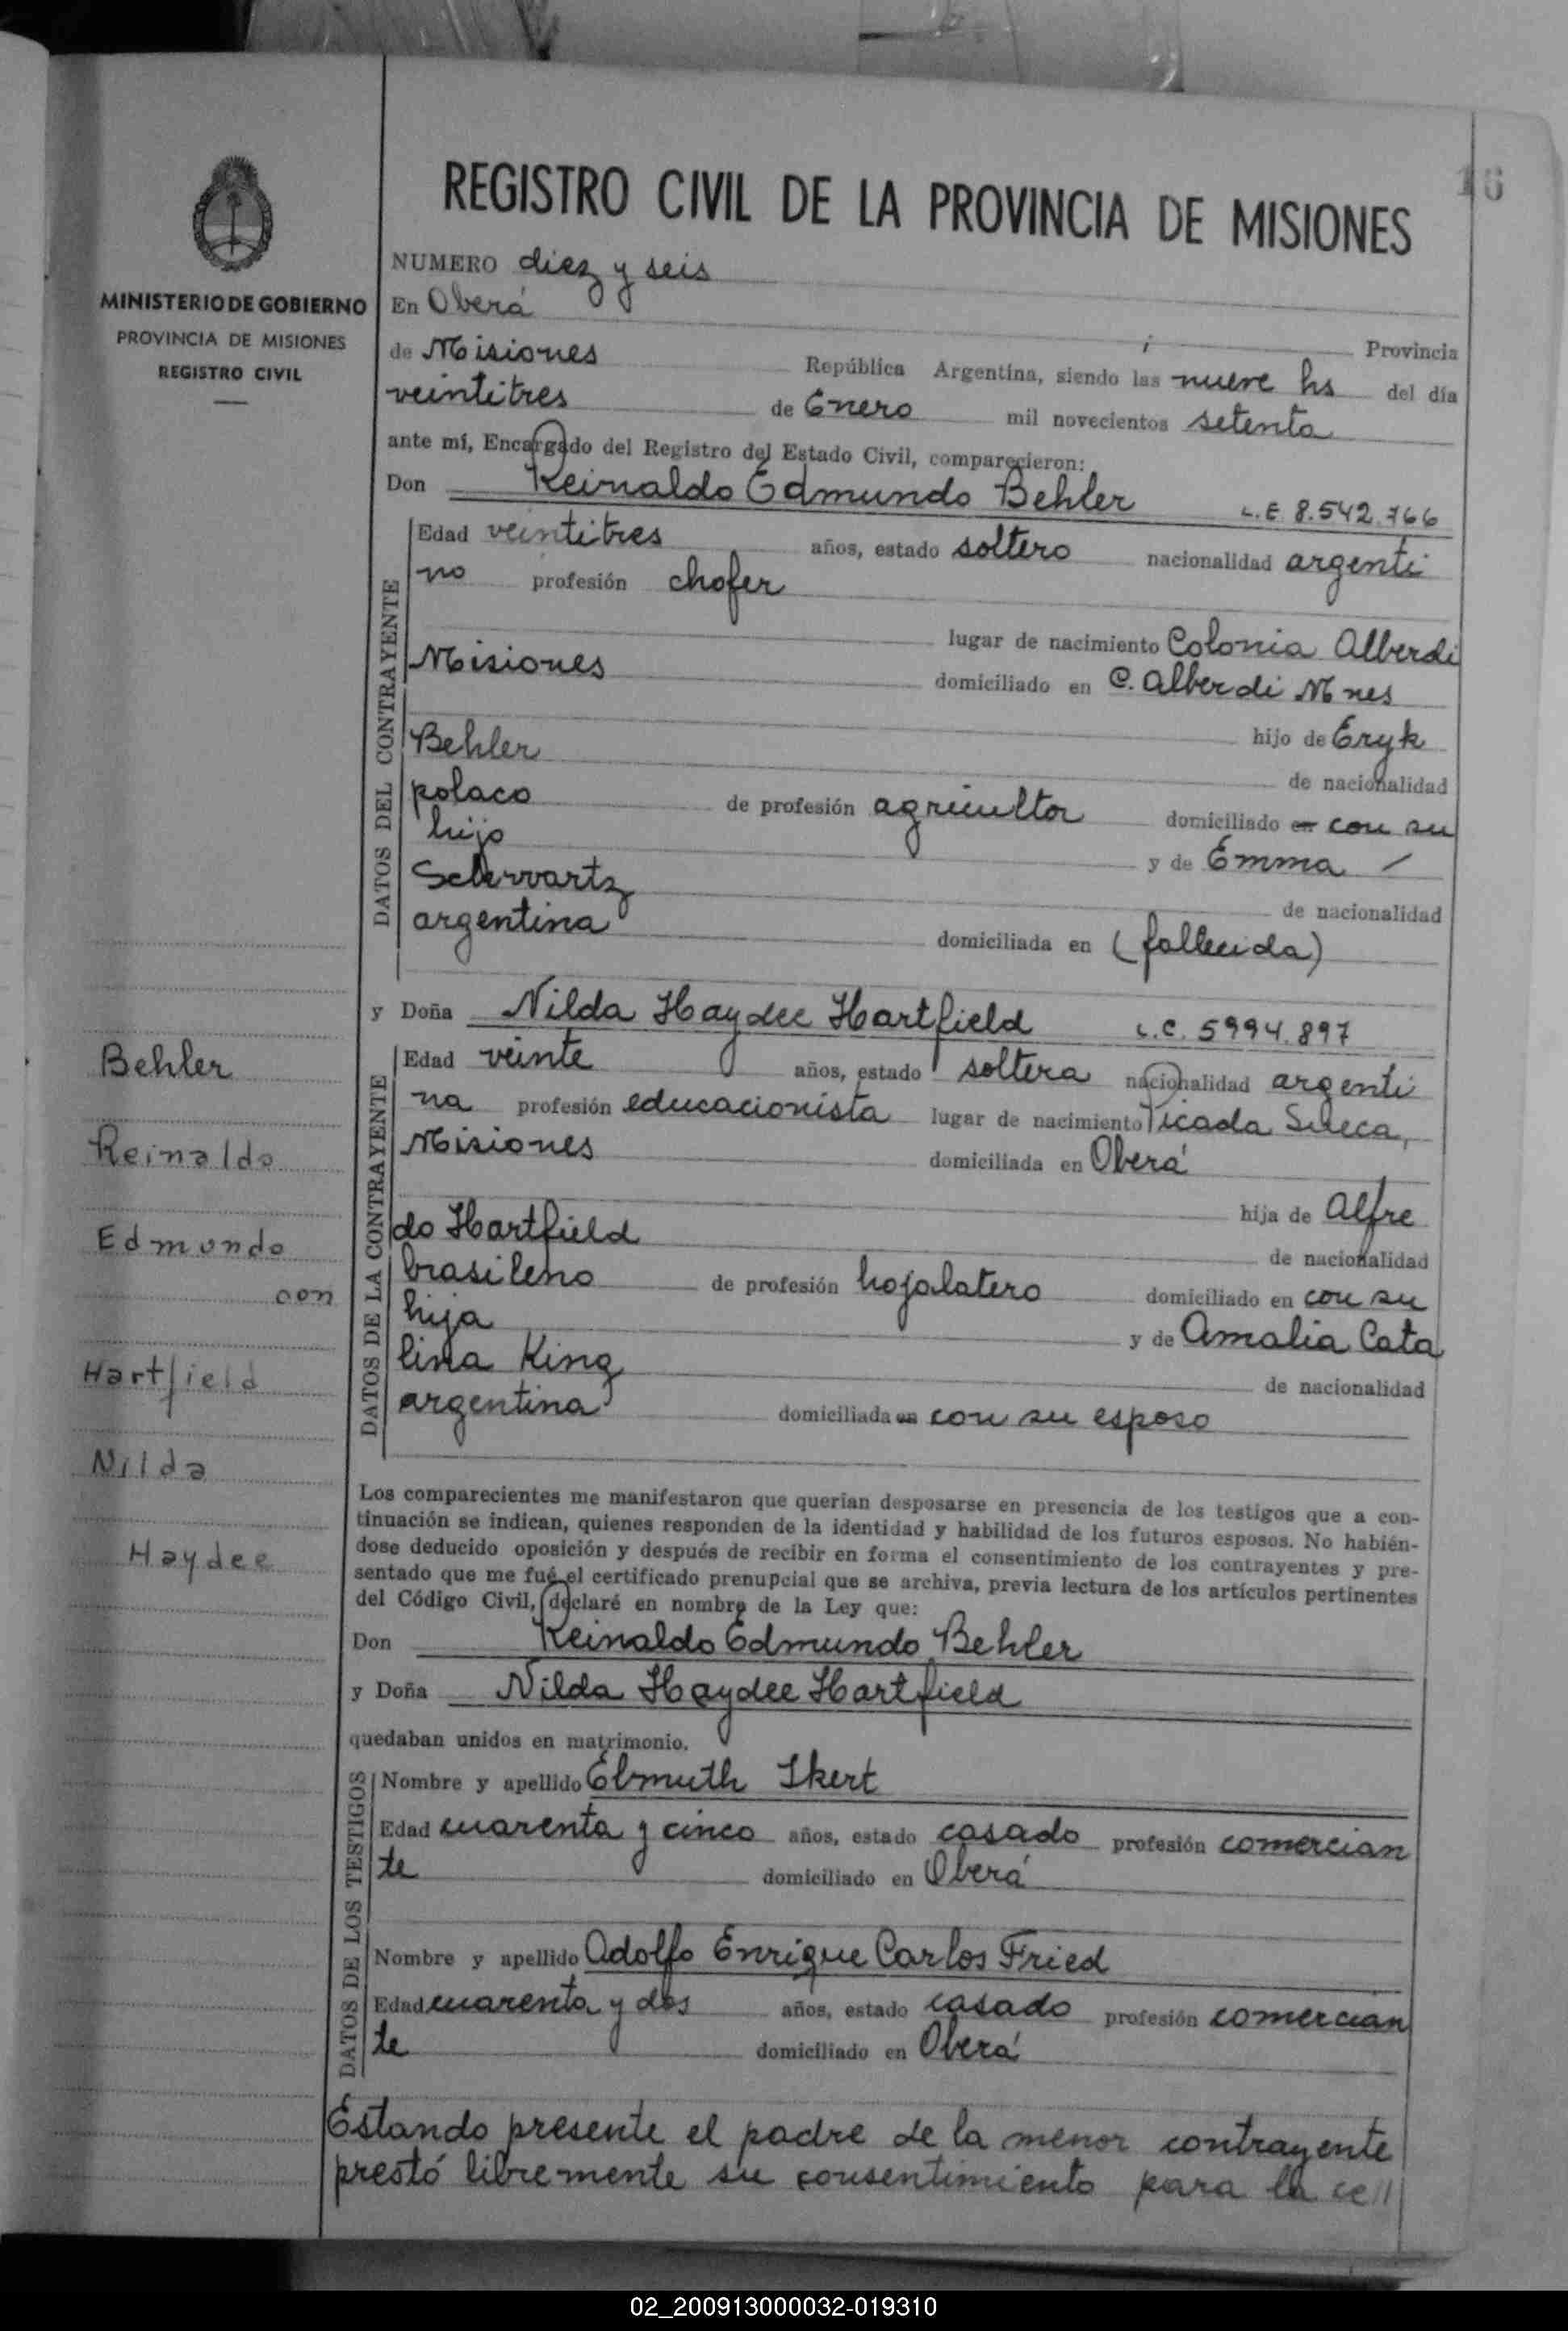 16
REGISTRO CIVIL DE LA PROVINCIA DE MISIONES
MINISTERIO DE GOBIERNO
PROVINCIA DE MISIONES
REGISTRO CIVIL
NUMERO diez y seis
En Oberá
Provincia
de Misiones República Argentina, siendo las nueve hs del día
veintitres de Enero mil novecientos setenta
ante mí, Encargado del Registro del Estado Civil, comparecieron:
Don Reinaldo Edmundo Behler L.E 8.542.766
DATOS DEL CONTRAYENTE
Edad veintitres años, estado soltero nacionalidad argenti
no profesión chofer
lugar de nacimiento Colonia Alberdi
Misiones domiciliado en C. Alberdi Mnes
hijo de Eryk
Behler de nacionalidad
polaco de profesión agricultor domiciliado en con su
hijo y de Emma
Schwartz de nacionalidad
argentina domiciliada en (fallecida)
y Doña Nilda Haydee Hartfield L.C. 5994.897
DATOS DE LA CONTRAYENTE
Edad veinte años, estado soltera nacionalidad argenti
na profesión educacionista lugar de nacimiento Picada Sueca,
Misiones domiciliada en Oberá
hija de Alfre
do Hartfield de nacionalidad
brasileno de profesión hojalatero domiciliado en con su
hija y de Amalia Cata
lina King de nacionalidad
argentina domiciliada en con su esposo
Behler
Reinaldo
Edmundo
con
Hartfield
Nilda
Haydee
Los comparecientes me manifestaron que querían desposarse en presencia de los testigos que a con-
tinuación se indican, quienes responden de la identidad y habilidad de los futuros esposos. No habién-
dose deducido oposición y después de recibir en forma el consentimiento de los contrayentes y pre-
sentado que me fué el certificado prenupcial que se archiva, previa lectura de los artículos pertinentes
del Código Civil, declaré en nombre de la Ley que:
Don Reinaldo Edmundo Behler
y Doña Nilda Haydee Hartfield
quedaban unidos en matrimonio.
DATOS DE LOS TESTIGOS
Nombre y apellido Elmuth Ikert
Edad cuarenta y cinco años, estado casado profesión comercian
te domiciliado en Oberá
Nombre y apellido Adolfo Enrique Carlos Fried
Edad cuarenta y dos años, estado casado profesión comercian
te domiciliado en Oberá
Estando presente el padre de la menor contrayente
prestó libremente su consentimiento para la ce//
02_200913000032-019310